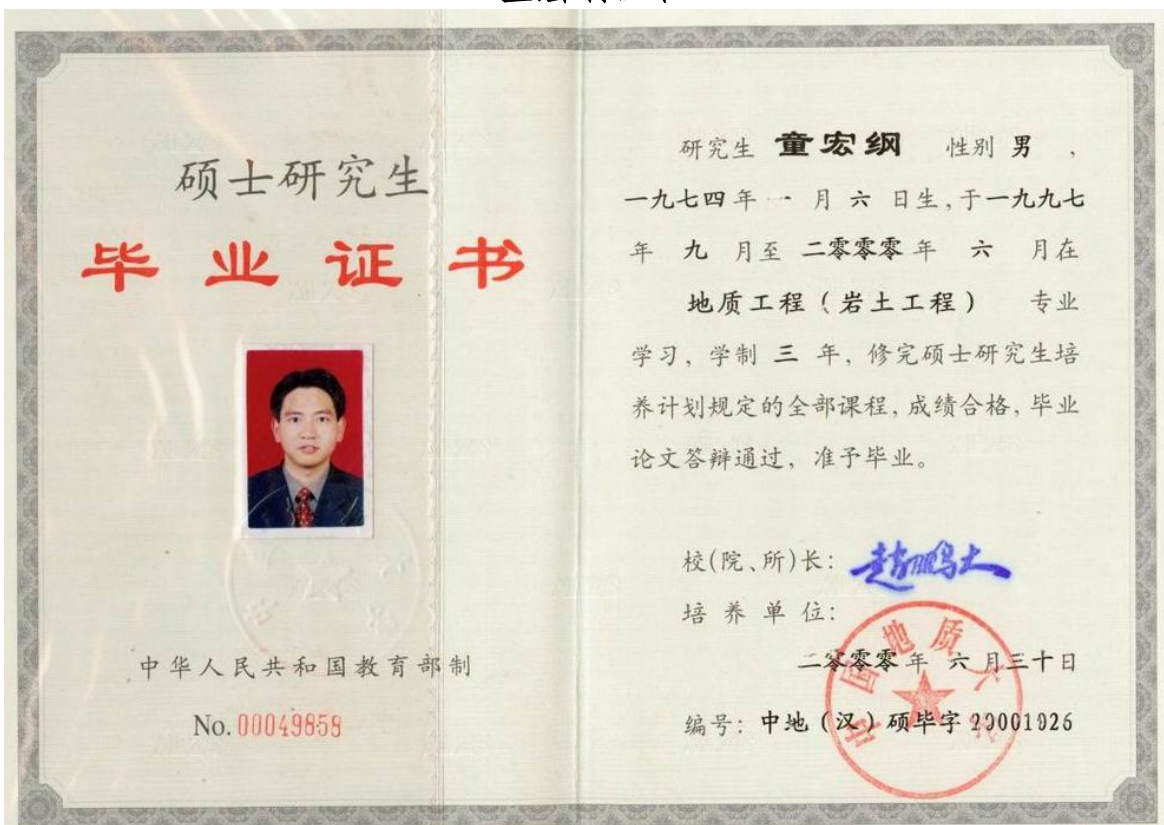 硕士研究生
毕业证书
中华人民共和国教育部制
No. 00049858
研究生 童宏纲 性别 男 ,
一九七四年 一 月 六 日生,于一九九七
年 九 月至 二零零零 年 六 月在
地质工程(岩土工程) 专业
学习, 学制 三 年, 修完硕士研究生培
养计划规定的全部课程, 成绩合格, 毕业
论文答辩通过, 准予毕业。
校(院、所)长: 赵鹏大
培养单位:
中国地质大学
二零零零年 六 月三十日
编号: 中地(汉)硕毕字